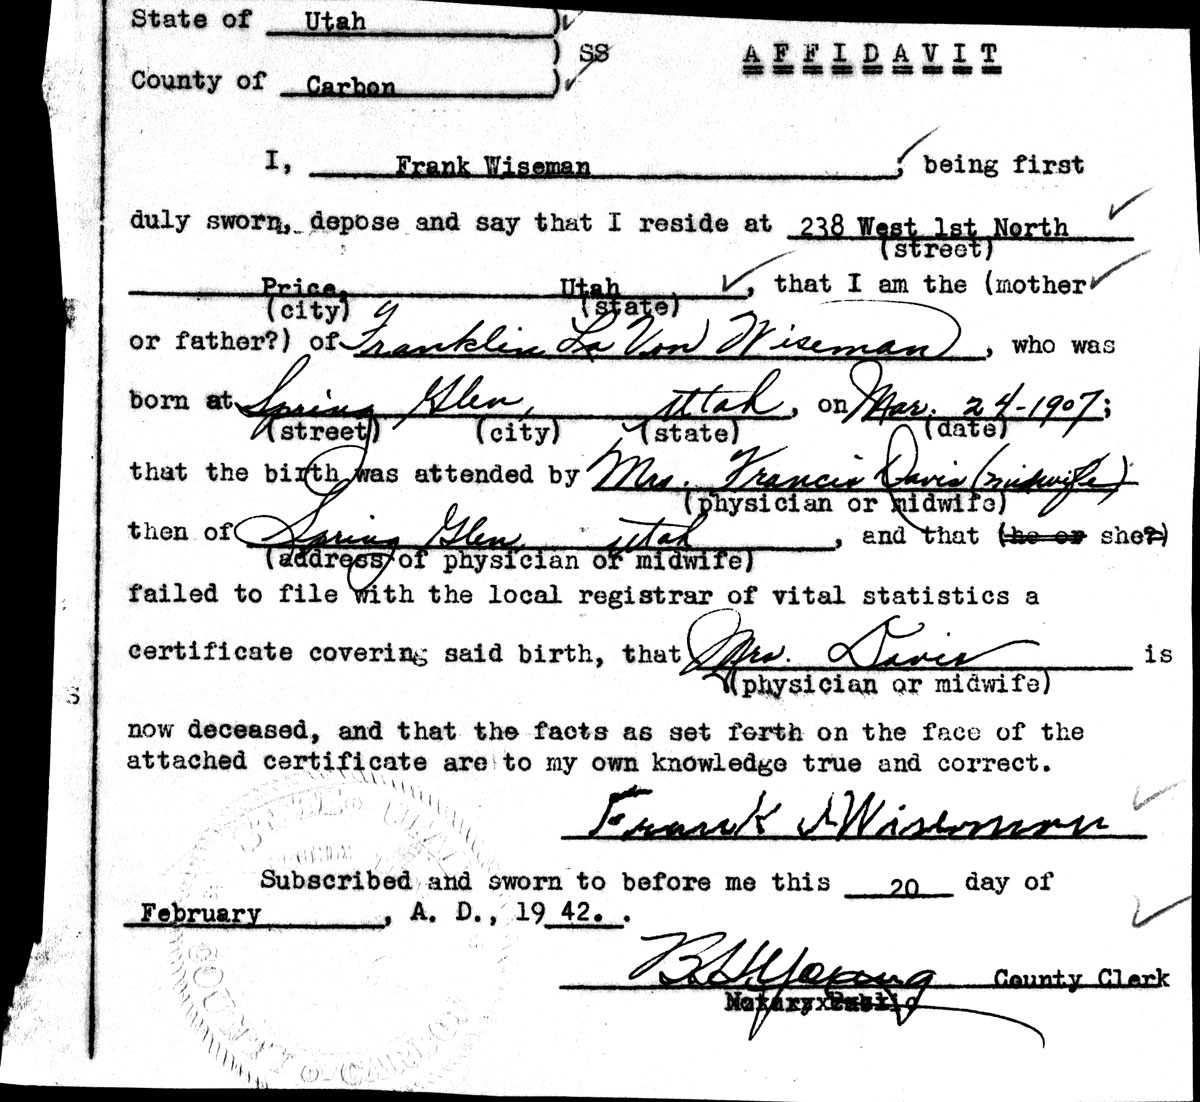 State of Utah )
) SS
AFFIDAVIT
County of Carbon )
I, Frank Wiseman ; being first
duly sworn, depose and say that I reside at 238 West 1st North
(street)
Price, Utah , that I am the (mother
(city) (state)
or father?) of Franklin La Von Wiseman , who was
born at Spring Glen, Utah , on Mar. 24-1907;
(street) (city) (state) (date)
that the birth was attended by Mrs. Francis Davis (midwife)
(physician or midwife)
then of Spring Glen Utah , and that (he or she?)
(address of physician or midwife)
failed to file with the local registrar of vital statistics a
certificate covering said birth, that Mrs. Davis is
(physician or midwife)
S
now deceased, and that the facts as set forth on the face of the
attached certificate are to my own knowledge true and correct.
Frank J Wiseman
Subscribed and sworn to before me this 20 day of
February , A. D., 19 42. .
B H Young County Clerk
Notary Public
STATE UTAH
COUNTY CARBON